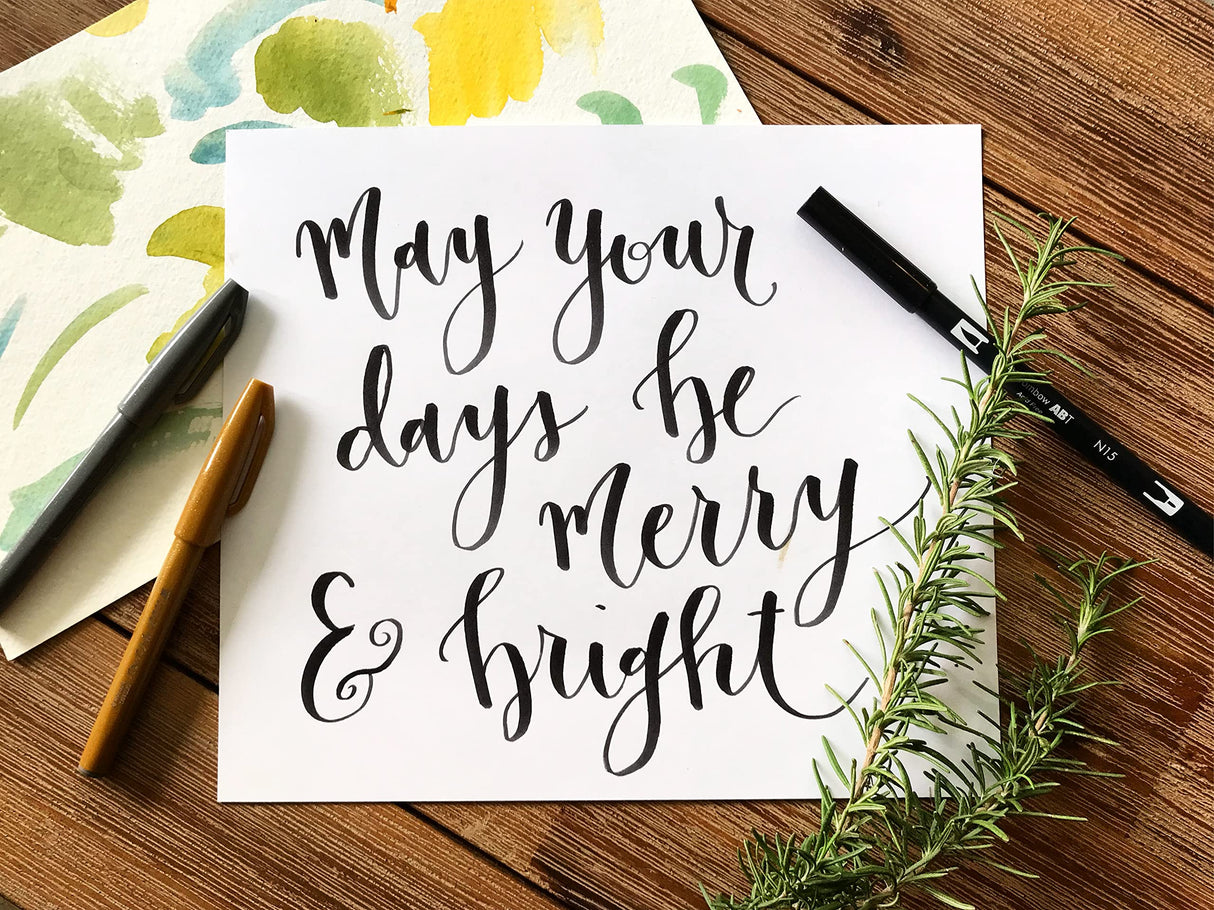 May your
days be
merry
& bright
ABT
N15